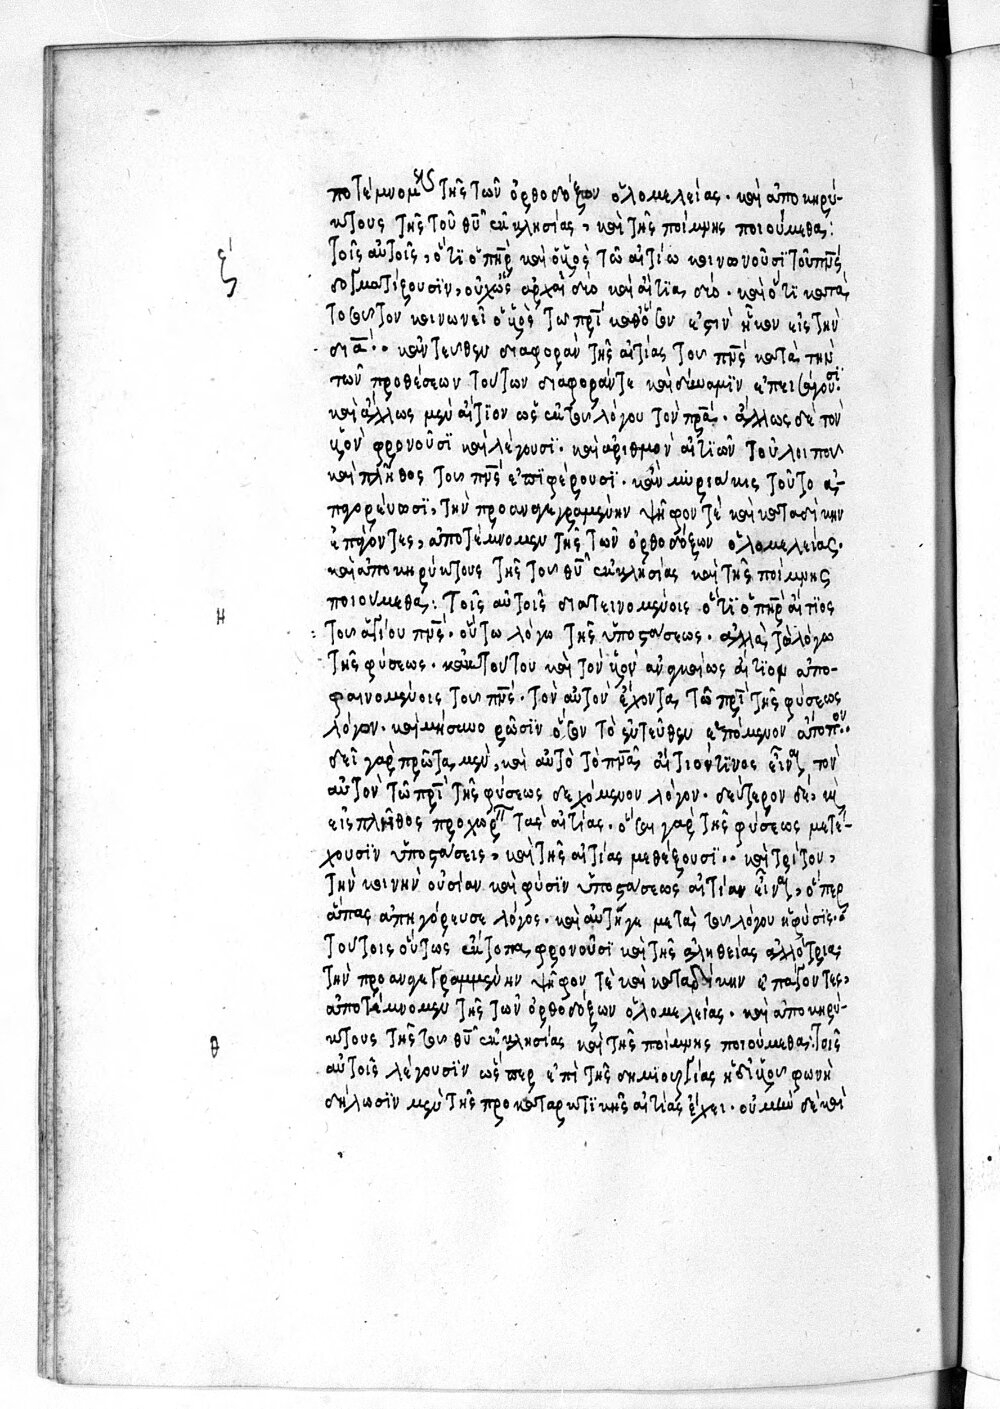 ποτέμνομεν τῆς τῶν ὀρθοδόξων ὁλομελείας· καὶ ἀποκηρύ-
κτους τῆς τοῦ θῦ ἐκκλησίας, καὶ τῆς ποίμνης ποιούμεθα:
ζ
Τοῖς αὐτοῖς, ὅτι ὁ πὴρ καὶ ὁ ὑὸς τῶ αἰτίω κοινωνοῦσι τοῦ πνς
δογματίζουσιν, οὐχ ὡς ἀρχαὶ δύο καὶ αἴτια δύο· καὶ ὅτι κατὰ
τοσοῦτον κοινωνεῖ ὁ ὑὸς τῶ πρὶ καθ' ὅσον ἐστὶν ἧκον εἰς τὴν
διὰ·· κἀντεῦθεν διαφορὰν τῆς αἰτίας τοῦ πνς κατὰ τὴν
τῶν προθέσεων τούτων διαφοράν τε καὶ δύναμιν ἐπεισάγουσι·
καὶ ἄλλως μὲν αἴτιον ὡς ἐκ τοῦ λόγου τὸν πρα· ἄλλως δὲ τὸν
ὑὸν φρονοῦσι καὶ λέγουσι· καὶ ἀριθμὸν αἰτιῶν τοῦ λοιποῦ
καὶ πλῆθος τοῦ πνς ἐπιφέρουσι· κἂν μυριάκις τοῦτο ἀ-
πηγορεύωσι, τὴν προαναγεγραμμένην ψῆφον τὲ καὶ καταδίκην
ἐπάγοντες, ἀποτέμνομεν τῆς τῶν ὀρθοδόξων ὁλομελείας·
καὶ ἀποκηρύκτους τῆς τοῦ θῦ ἐκκλησίας καὶ τῆς ποίμνης
ποιούμεθα: Τοῖς αὐτοῖς διατεινομένοις ὅτι ὁ πὴρ αἴτιος
η
τοῦ ἁγίου πνς· οὔτω λόγω τῆς ὑποστάσεως· ἀλλὰ τῶ λόγω
τῆς φύσεως· κἀκ τούτου καὶ τὸν ὑὸν ἀναγκαίως αἴτιον ἀπο-
φαινομένοις τοῦ πνς· τὸν αὐτὸν ἔχοντα τῶ πρὶ τῆς φύσεως
λόγον· καὶ μὴ συνορῶσιν ὅσον τὸ ἐντεῦθεν ἑπόμενον ἄτοπον··
δεῖ γὰρ πρῶτα μὲν, καὶ αὐτὸ τὸ πνα αἴτιόν τινος εἶναι τὸν
αὐτὸν τῶ πρὶ τῆς φύσεως δεχόμενον λόγον· δεύτερον δὲ, καὶ
εἰς πλῆθος προχωρεῖν τὰς αἰτίας· ὅσαι γὰρ τῆς φύσεως μετέ-
χουσιν ὑποστάσεις, καὶ τῆς αἰτίας μεθέξουσι·· καὶ τρίτον,
τὴν κοινὴν οὐσίαν καὶ φύσιν ὑποστάσεως αἰτίαν εἶναι, ὅπερ
ἅπας ἀπηγόρευσε λόγος· καὶ αὐτή γε μετὰ τοῦ λόγου ἡ φύσις·
τούτοις οὕτως ἔκτοπα φρονοῦσι καὶ τῆς ἀληθείας ἀλλότρια,
τὴν προαναγεγραμμένην ψῆφον τὲ καὶ καταδίκην ἐπάγοντες,
ἀποτέμνομεν τῆς τῶν ὀρθοδόξων ὁλομελείας· καὶ ἀποκηρύ-
κτους τῆς τοῦ θῦ ἐκκλησίας καὶ τῆς ποίμνης ποιούμεθα: Τοῖς
θ
αὐτοῖς λέγουσιν ὥσπερ ἐπὶ τῆς δημιουργίας ἡ δι' ὑοῦ φωνὴ
δήλωσιν μὲν τῆς προκαταρκτικῆς αἰτίας ἔχει· οὐ μὴν δὲ καὶ